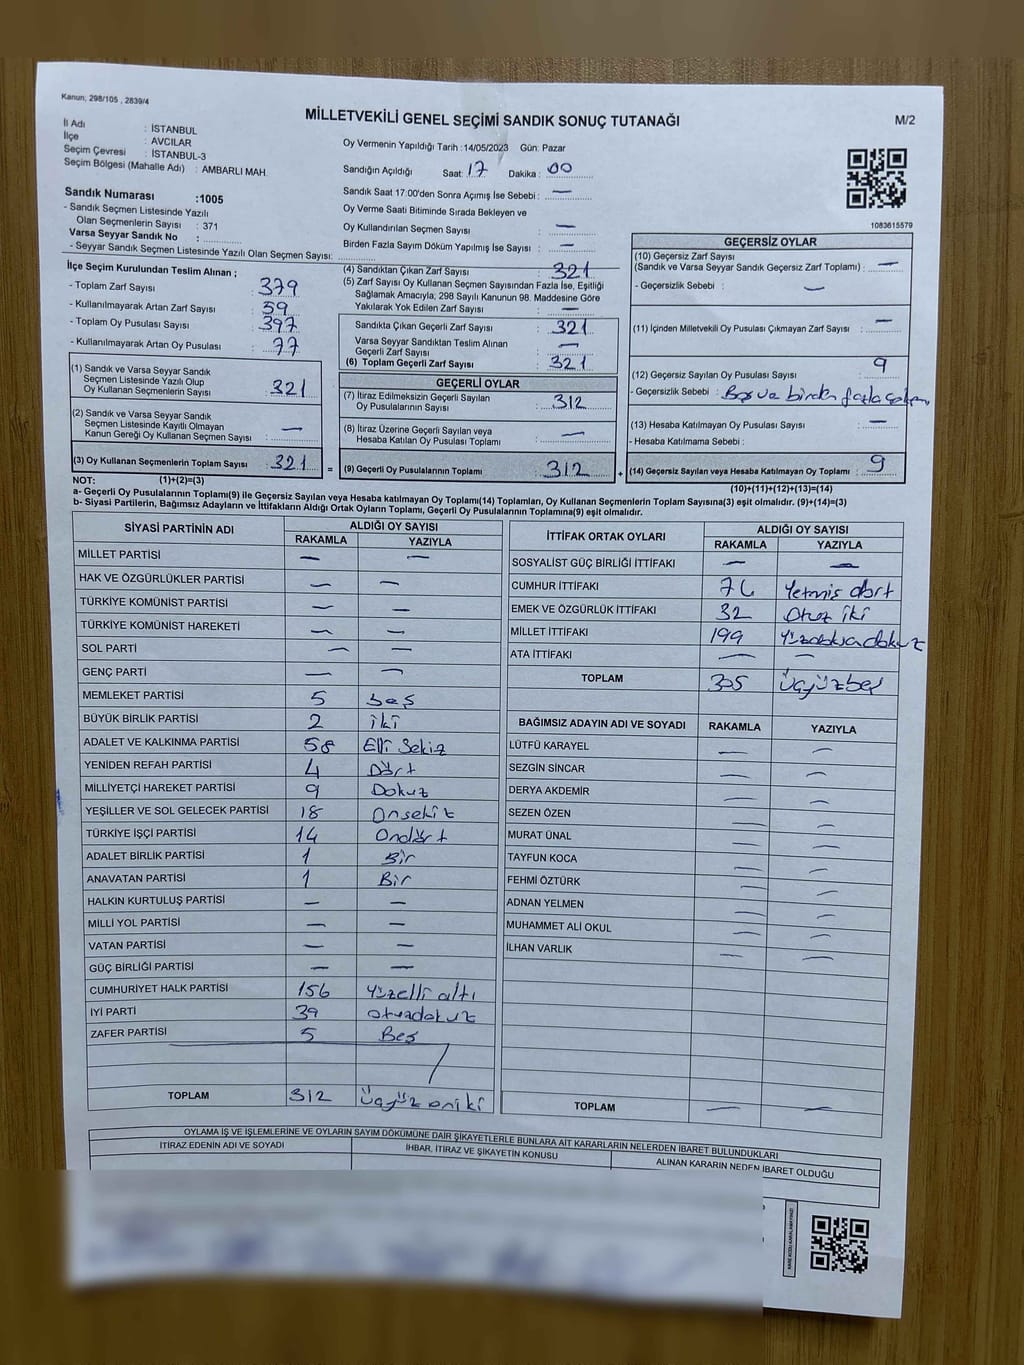 Kanun; 298/105 , 2839/4
MİLLETVEKİLİ GENEL SEÇİMİ SANDIK SONUÇ TUTANAĞI
M/2
İl Adı : İSTANBUL
İlçe : AVCILAR
Seçim Çevresi : İSTANBUL-3
Seçim Bölgesi (Mahalle Adı) : AMBARLI MAH.
Sandık Numarası :1005
- Sandık Seçmen Listesinde Yazılı
Olan Seçmenlerin Sayısı : 371
Varsa Seyyar Sandık No :
- Seyyar Sandık Seçmen Listesinde Yazılı Olan Seçmen Sayısı:
Oy Vermenin Yapıldığı Tarih :14/05/2023 Gün: Pazar
Sandığın Açıldığı Saat: 17 Dakika : 00
Sandık Saat 17:00'den Sonra Açımış İse Sebebi : —
Oy Verme Saati Bitiminde Sırada Bekleyen ve
Oy Kullandırılan Seçmen Sayısı : —
Birden Fazla Sayım Döküm Yapılmış İse Sayısı : —
1083615579
İlçe Seçim Kurulundan Teslim Alınan ;
- Toplam Zarf Sayısı : 379
- Kullanılmayarak Artan Zarf Sayısı : 59
- Toplam Oy Pusulası Sayısı : 397
- Kullanılmayarak Artan Oy Pusulası : 77
(1) Sandık ve Varsa Seyyar Sandık
Seçmen Listesinde Yazılı Olup
Oy Kullanan Seçmenlerin Sayısı : 321
(2) Sandık ve Varsa Seyyar Sandık
Seçmen Listesinde Kayıtlı Olmayan
Kanun Gereği Oy Kullanan Seçmen Sayısı : —
(3) Oy Kullanan Seçmenlerin Toplam Sayısı : 321 =
(4) Sandıktan Çıkan Zarf Sayısı : 321
(5) Zarf Sayısı Oy Kullanan Seçmen Sayısından Fazla İse, Eşitliği
Sağlamak Amacıyla; 298 Sayılı Kanunun 98. Maddesine Göre
Yakılarak Yok Edilen Zarf Sayısı : —
Sandıkta Çıkan Geçerli Zarf Sayısı : 321
Varsa Seyyar Sandıktan Teslim Alınan
Geçerli Zarf Sayısı : —
(6) Toplam Geçerli Zarf Sayısı : 321
GEÇERLİ OYLAR
(7) İtiraz Edilmeksizin Geçerli Sayılan
Oy Pusulalarının Sayısı : 312
(8) İtiraz Üzerine Geçerli Sayılan veya
Hesaba Katılan Oy Pusulası Toplamı : —
(9) Geçerli Oy Pusulalarının Toplamı : 312 +
GEÇERSİZ OYLAR
(10) Geçersiz Zarf Sayısı
(Sandık ve Varsa Seyyar Sandık Geçersiz Zarf Toplamı) : —
- Geçersizlik Sebebi : —
(11) İçinden Milletvekili Oy Pusulası Çıkmayan Zarf Sayısı : —
(12) Geçersiz Sayılan Oy Pusulası Sayısı : 9
- Geçersizlik Sebebi : Boş ve birden fazla
(13) Hesaba Katılmayan Oy Pusulası Sayısı : —
- Hesaba Katılmama Sebebi :
(14) Geçersiz Sayılan veya Hesaba Katılmayan Oy Toplamı : 9
NOT: (1)+(2)=(3)
(10)+(11)+(12)+(13)=(14)
a- Geçerli Oy Pusulalarının Toplamı(9) ile Geçersiz Sayılan veya Hesaba katılmayan Oy Toplamı(14) Toplamları, Oy Kullanan Seçmenlerin Toplam Sayısına(3) eşit olmalıdır. (9)+(14)=(3)
b- Siyasi Partilerin, Bağımsız Adayların ve İttifakların Aldığı Ortak Oyların Toplamı, Geçerli Oy Pusulalarının Toplamına(9) eşit olmalıdır.
SİYASİ PARTİNİN ADI ALDIĞI OY SAYISI
RAKAMLA YAZIYLA
MİLLET PARTİSİ — —
HAK VE ÖZGÜRLÜKLER PARTİSİ — —
TÜRKİYE KOMÜNİST PARTİSİ — —
TÜRKİYE KOMÜNİST HAREKETİ — —
SOL PARTİ — —
GENÇ PARTİ — —
MEMLEKET PARTİSİ 5 beş
BÜYÜK BİRLİK PARTİSİ 2 iki
ADALET VE KALKINMA PARTİSİ 58 Elli Sekiz
YENİDEN REFAH PARTİSİ 4 Dört
MİLLİYETÇİ HAREKET PARTİSİ 9 Dokuz
YEŞİLLER VE SOL GELECEK PARTİSİ 18 Onsekiz
TÜRKİYE İŞÇİ PARTİSİ 14 Ondört
ADALET BİRLİK PARTİSİ 1 Bir
ANAVATAN PARTİSİ 1 Bir
HALKIN KURTULUŞ PARTİSİ — —
MİLLİ YOL PARTİSİ — —
VATAN PARTİSİ — —
GÜÇ BİRLİĞİ PARTİSİ — —
CUMHURİYET HALK PARTİSİ 156 Yüzelli altı
İYİ PARTİ 39 otuzdokuz
ZAFER PARTİSİ 5 Beş
TOPLAM 312 Üçyüz oniki
İTTİFAK ORTAK OYLARI ALDIĞI OY SAYISI
RAKAMLA YAZIYLA
SOSYALİST GÜÇ BİRLİĞİ İTTİFAKI — —
CUMHUR İTTİFAKI 74 Yetmiş dört
EMEK VE ÖZGÜRLÜK İTTİFAKI 32 Otuz iki
MİLLET İTTİFAKI 199 Yüzdoksandokuz
ATA İTTİFAKI — —
TOPLAM 305 Üçyüzbeş
BAĞIMSIZ ADAYIN ADI VE SOYADI RAKAMLA YAZIYLA
LÜTFÜ KARAYEL — —
SEZGİN SİNCAR — —
DERYA AKDEMİR — —
SEZEN ÖZEN — —
MURAT ÜNAL — —
TAYFUN KOCA — —
FEHMİ ÖZTÜRK — —
ADNAN YELMEN — —
MUHAMMET ALİ OKUL — —
İLHAN VARLIK — —
TOPLAM — —
OYLAMA İŞ VE İŞLEMLERİNE VE OYLARIN SAYIM DÖKÜMÜNE DAİR ŞİKAYETLERLE BUNLARA AİT KARARLARIN NELERDEN İBARET BULUNDUKLARI
İTİRAZ EDENİN ADI VE SOYADI İHBAR, İTİRAZ VE ŞİKAYETİN KONUSU ALINAN KARARIN NEDEN İBARET OLDUĞU